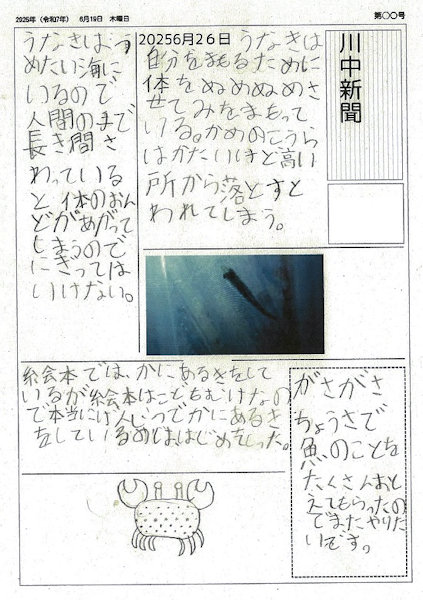 2025年(令和7年) 6月19日 木曜日
第〇〇号
川中新聞
20256月26日 うなきは
自分をまもるために
体をぬめぬめさ
せてみをまもって
いる。かめのこうら
はかたいほど高い
所から落とすと
われてしまう。
うなきはつ
めたい海に
いるので
人間の手で
長き間さ
わっている
と体のおん
どがあがって
しまうので
にぎっては
いけない。
絵本では、かにあるきをして
いるが絵本はこどもむけなの
で本当にけんじつでかにあるき
をしているのははじめてしった。
がさがさ
ちょうさで
魚のことを
たくさんおし
えてもらったの
でまたやりた
いです。